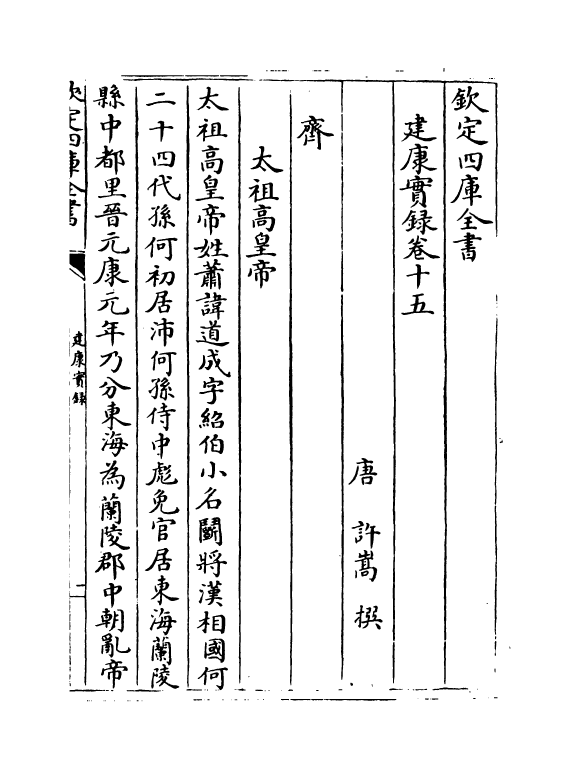 欽定四庫全書
建康實録卷十五
唐 許嵩 撰
齊
太祖高皇帝
太祖高皇帝姓蕭諱道成字紹伯小名鬭將漢相國何
二十四代孫何初居沛何孫侍中彪免官居東海蘭陵
縣中都里晉元康元年乃分東海為蘭陵郡中朝亂帝
欽定四庫全書
建康實録
一